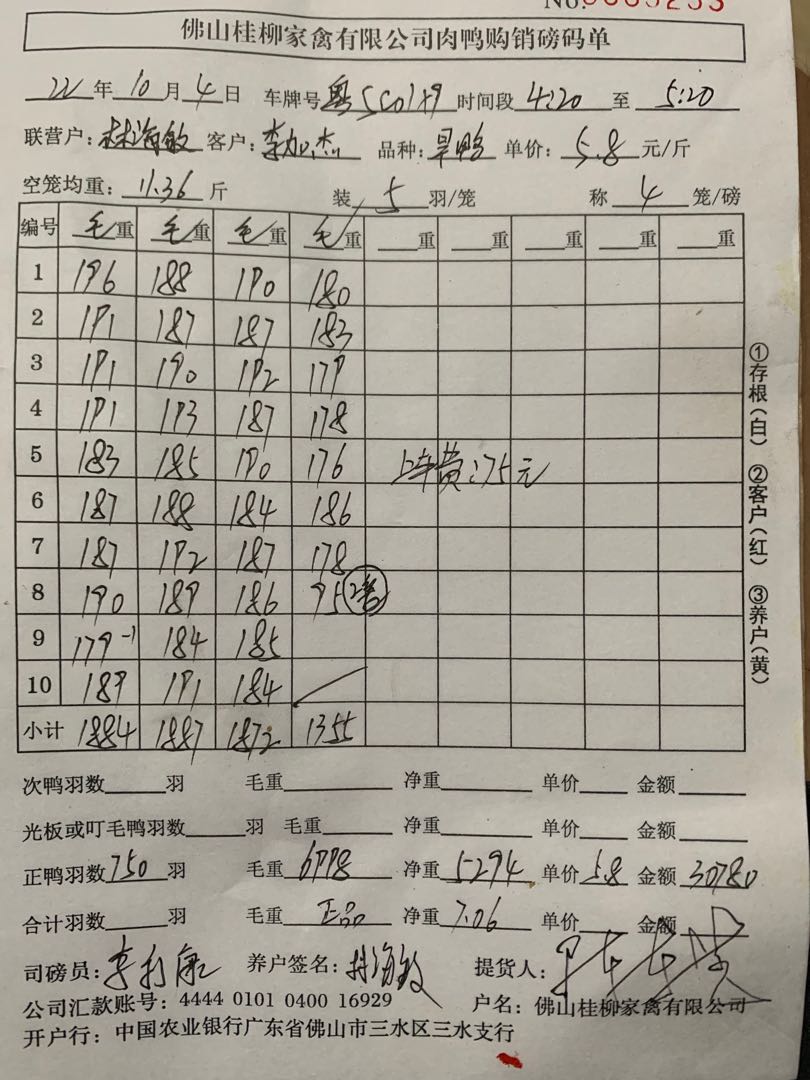 佛山桂柳家禽有限公司肉鸭购销磅码单
22年10月4日 车牌号粤SC01 时间段4:20至5:20
联营户:林海敏 客户:李加杰 品种:旱鸭 单价:5.8元/斤
空笼均重:11.36斤 装5羽/笼 称4笼/磅
编号 毛重 毛重 毛重 毛重 重 重 重 重 重
1 196 188 190 180
2 191 187 187 183
3 191 190 192 179
4 191 193 187 178
5 183 185 190 176 上车费:75元
6 187 188 184 186
7 187 192 187 178
8 190 189 186 95
9 179-1 184 185
10 189 191 184
小计 1884 1887 1872 1355
次鸭羽数 羽 毛重 净重 单价 金额
光板或叮毛鸭羽数 羽 毛重 净重 单价 金额
正鸭羽数750羽 毛重6998 净重5294 单价5.8 金额30780
合计羽数 羽 毛重正品 净重7.06 单价 金额
司磅员:李 康 养户签名:林海敏 提货人:
公司汇款账号:4444 0101 0400 16929 户名:佛山桂柳家禽有限公司
开户行:中国农业银行广东省佛山市三水区三水支行
①存根(白) ②客户(红) ③养户(黄)